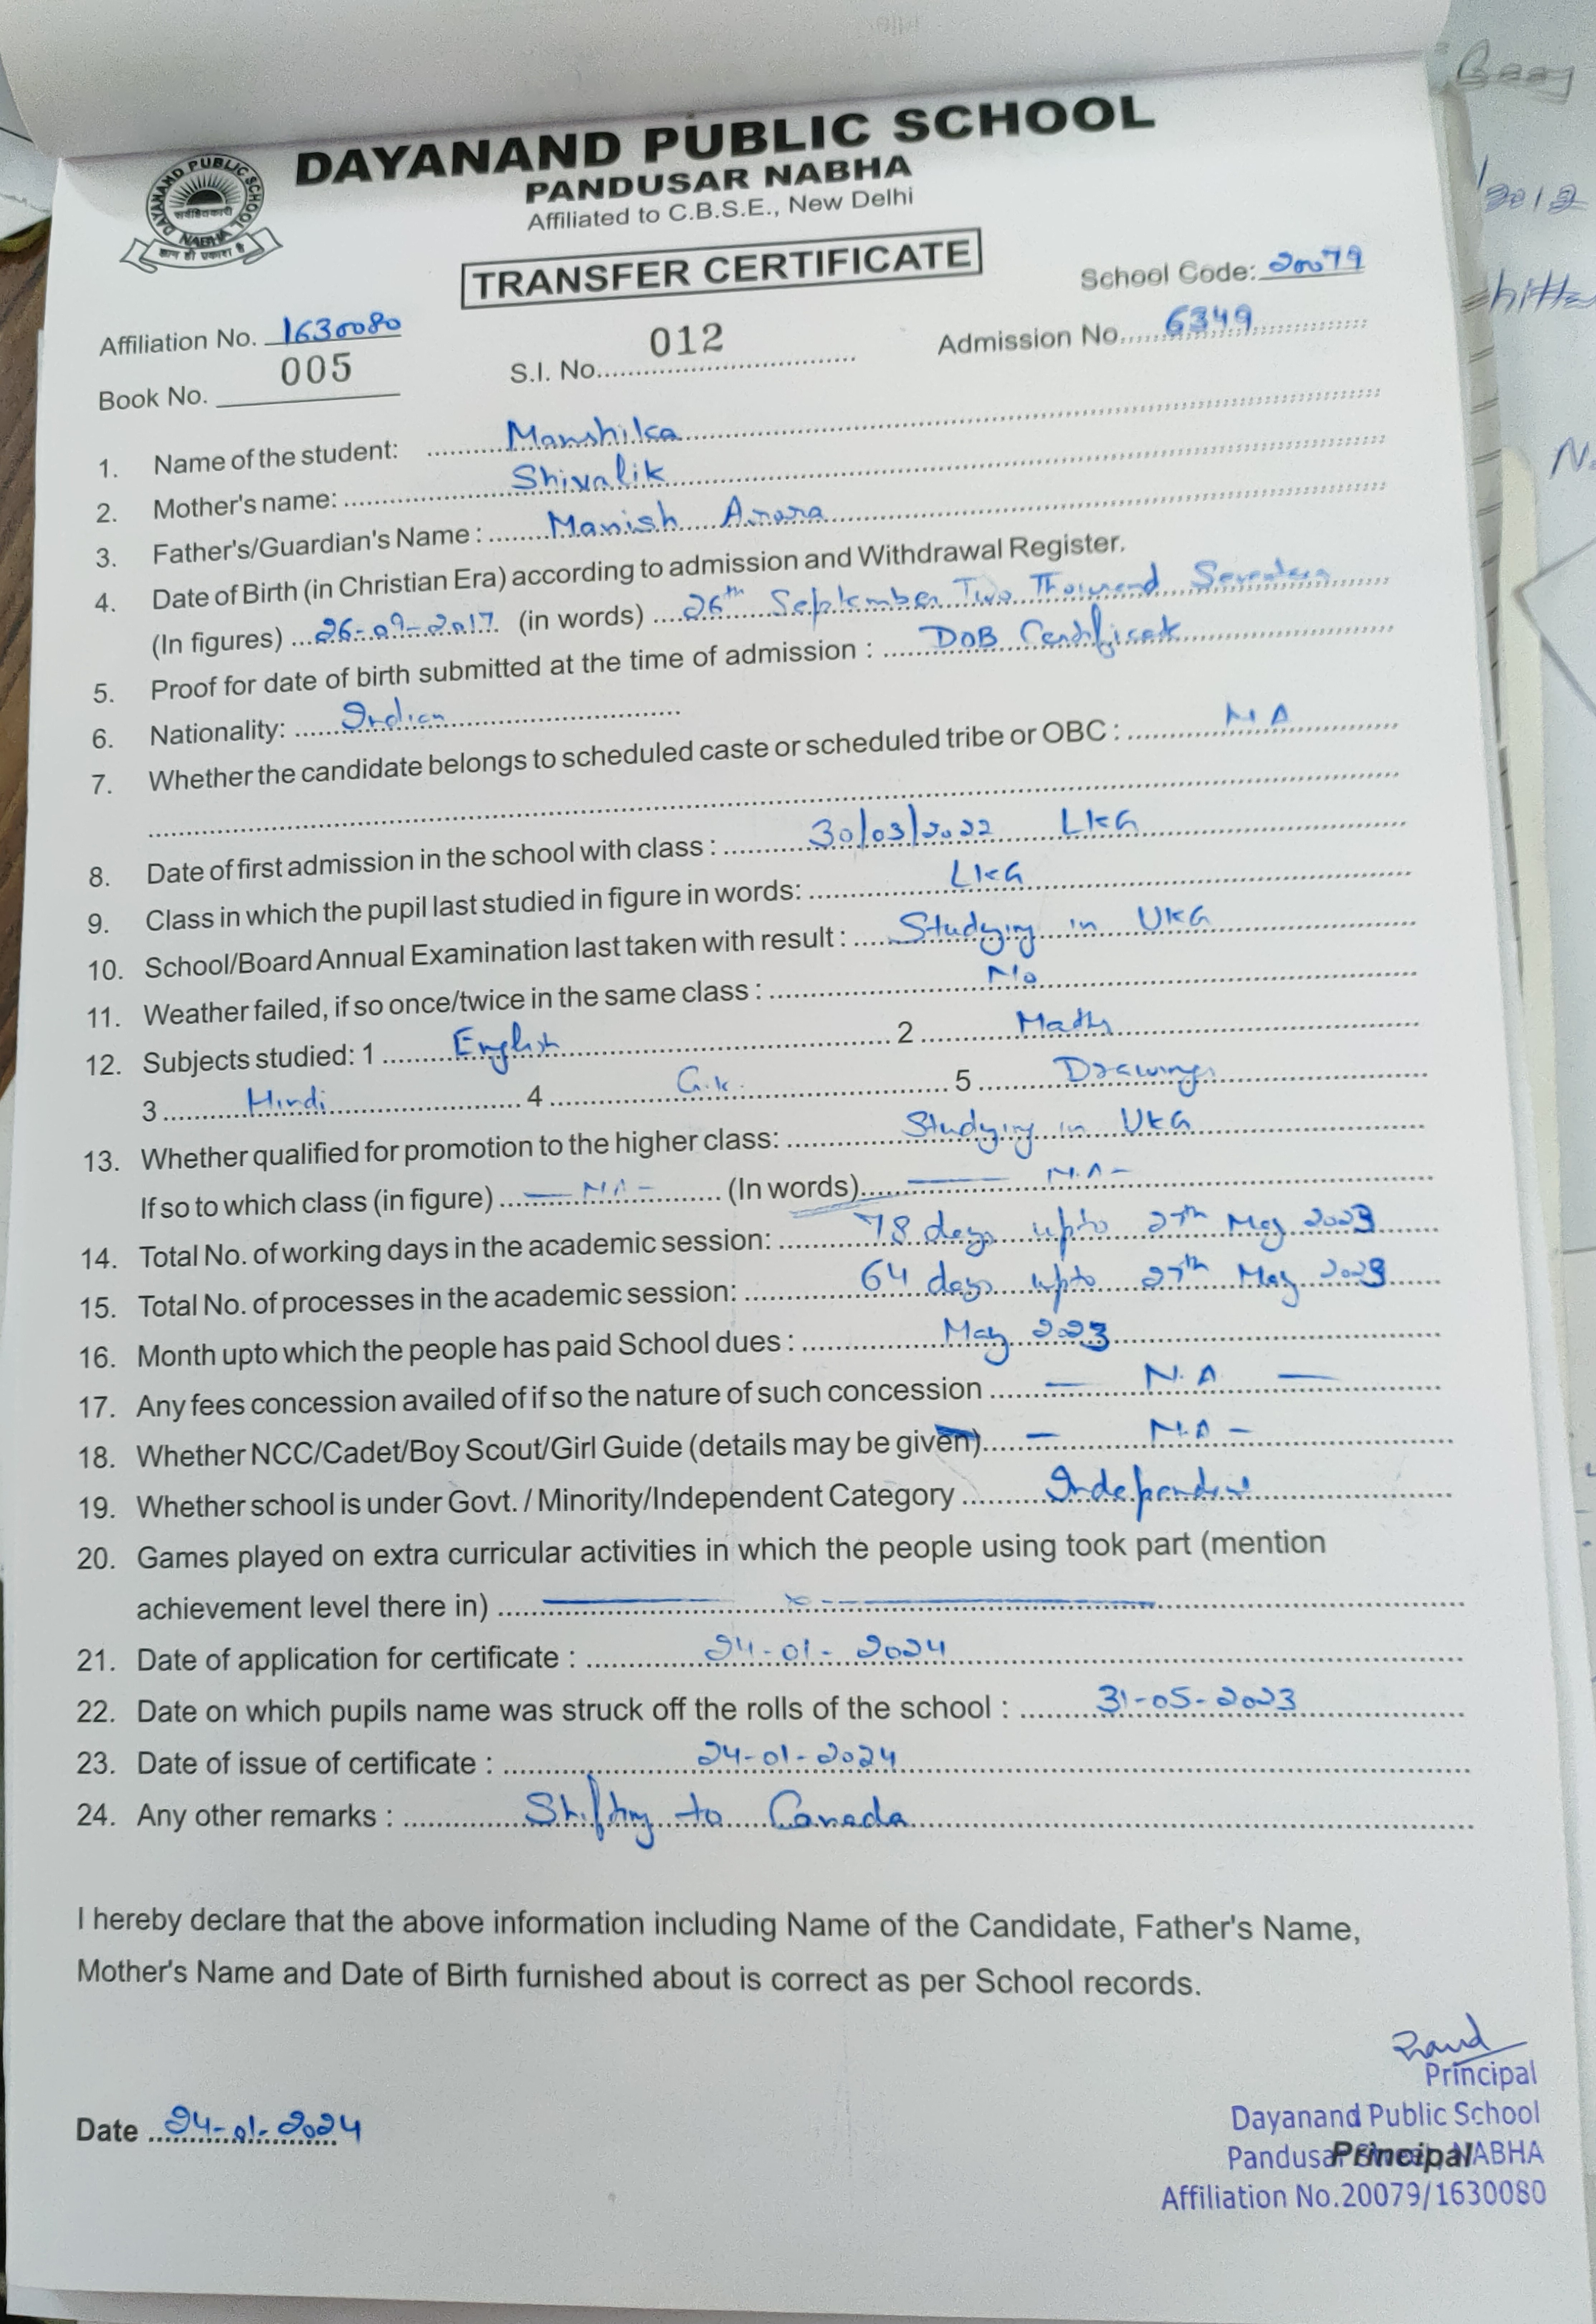 DAYANAND PUBLIC SCHOOL
PANDUSAR NABHA
Affiliated to C.B.S.E., New Delhi
DAYANAND PUBLIC SCHOOL
NABHA
ज्ञान ही प्रकाश है
TRANSFER CERTIFICATE
School Code: 20079
Affiliation No. 1630080
Book No. 005
S.I. No. 012
Admission No. 6349
1. Name of the student: Manshika
2. Mother's name: Shivalik
3. Father's/Guardian's Name : Manish Arora
4. Date of Birth (in Christian Era) according to admission and Withdrawal Register.
(In figures) 26-09-2017 (in words) 26th September Two Thousand Seventeen
5. Proof for date of birth submitted at the time of admission : DOB Certificate
6. Nationality: Indian
7. Whether the candidate belongs to scheduled caste or scheduled tribe or OBC : NA
8. Date of first admission in the school with class : 30/03/2022 LKG
9. Class in which the pupil last studied in figure in words: LKG
10. School/Board Annual Examination last taken with result : Studying in UKG
11. Weather failed, if so once/twice in the same class : No
12. Subjects studied: 1 English 2 Maths
3 Hindi 4 G.K. 5 Drawing
13. Whether qualified for promotion to the higher class: Studying in UKG
If so to which class (in figure) — NA - (In words) — N.A -
14. Total No. of working days in the academic session: 78 days upto 27th May 2023
15. Total No. of processes in the academic session: 64 days upto 27th May 2023
16. Month upto which the people has paid School dues : May 2023
17. Any fees concession availed of if so the nature of such concession — N.A —
18. Whether NCC/Cadet/Boy Scout/Girl Guide (details may be given) — N.A -
19. Whether school is under Govt. / Minority/Independent Category Independent
20. Games played on extra curricular activities in which the people using took part (mention
achievement level there in) — x —
21. Date of application for certificate : 24-01-2024
22. Date on which pupils name was struck off the rolls of the school : 31-05-2023
23. Date of issue of certificate : 24-01-2024
24. Any other remarks : Shifting to Canada
I hereby declare that the above information including Name of the Candidate, Father's Name,
Mother's Name and Date of Birth furnished about is correct as per School records.
Date 24-01-2024
Principal
Dayanand Public School
Pandusar NABHA
Principal
Affiliation No.20079/1630080